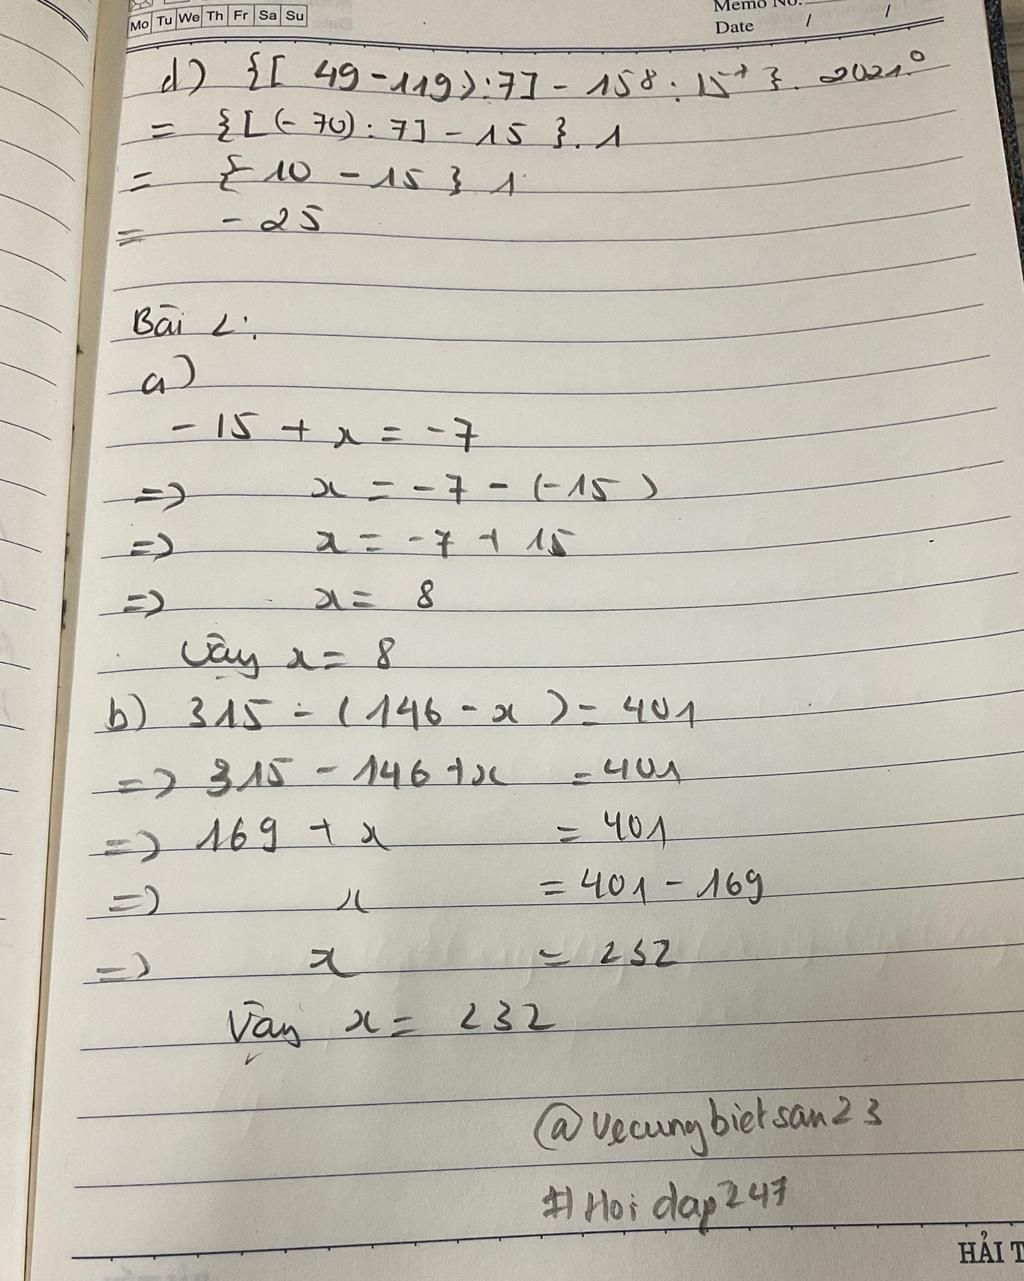 Mo Tu We Th Fr Sa Su
Memo No.
Date / /
d) {[ 49 - 119) : 7] - 15⁸ : 15⁷ } . 2021⁰
= {[ (- 70) : 7] - 15 } . 1
= {- 10 - 15 } 1
= - 25
Bài 2:
a)
- 15 + x = - 7
=> x = - 7 - (-15)
=> x = - 7 + 15
=> x = 8
Vậy x = 8
b) 315 - (146 - x ) = 401
=> 315 - 146 + x = 401
=> 169 + x = 401
=> x = 401 - 169
=> x = 232
Vậy x = 232
@vecungbietsan23
#Hoidap247
HẢI T